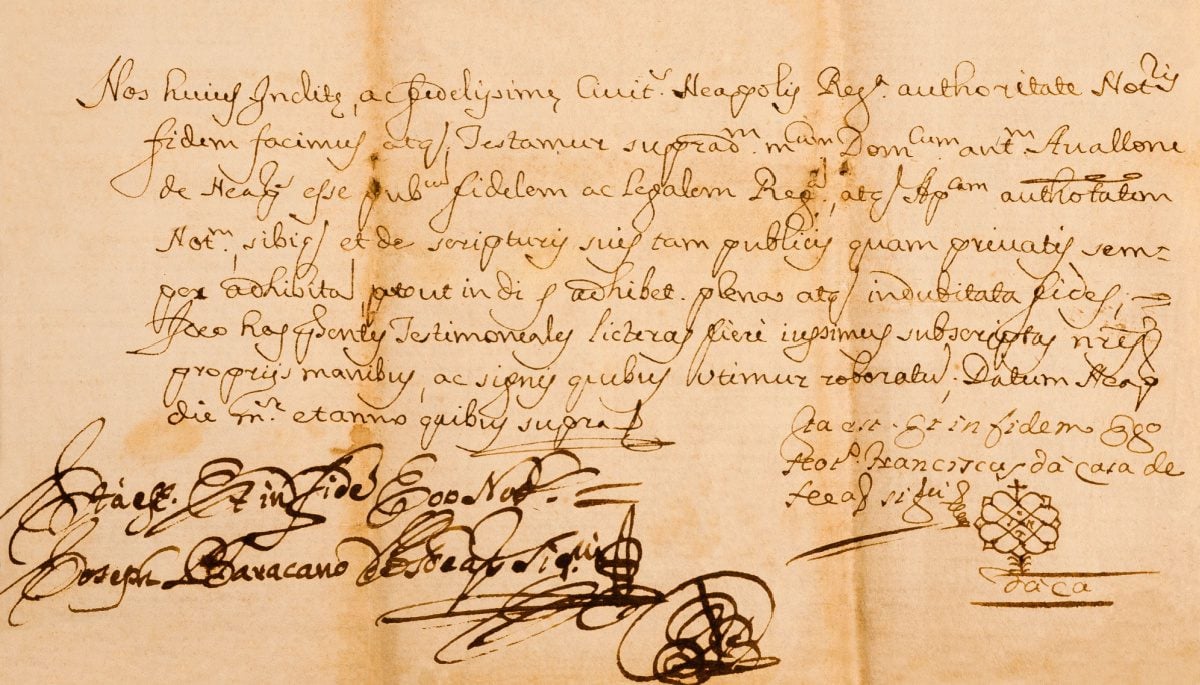 Nos huius Inclitę, ac fidelissimę Civit.ͭ Neapolis Reg.ª authoritate Not.ʳⁱˢ
fidem facimus atq; Testamur suprad.ᵐ m.ᶜᵘᵐ Dom.ᶜᵘᵐ ant.ᵐ Auallone
de Neap. esse pub.ᶜᵘᵐ fidelem ac Legalem Reg.ª, atq; Ap.ᶜᵃᵐ
Not.ᵐ, sibiq; et de scripturis suis tam publicis quam privatis sem=
per adhibita, prout in di s adhibet. plena atq; indubitata fides;
Ideo has p̃sentes Testimoneales licteras fieri iussimus subscriptas nr̃is
proprijs manibus, ac signis quibus utimur roboratas. Datum Neap
die m.ᵉ et anno quibus supra
Ita est. Et in fidem Ego
Not.ʳ Franciscus da Cara de
Neap. sig.ᵛⁱ
da Ca
Ita est. Et in fidē Ego Not.ʳ
Joseph Baracano de Neap. Sig.ᵛⁱ